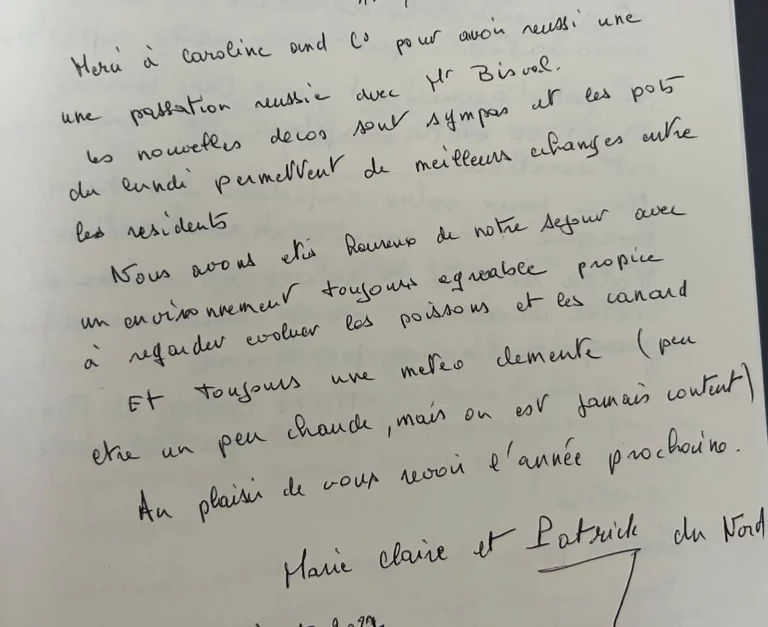 Merci à Caroline and C° pour avoir reussi une
une passation reussie avec Mr Bisval.
les nouvelles decos sont sympas et les pots
du lundi permettent de meilleurs echanges entre
les residents
Nous avons etés heureux de notre sejour avec
un environnement toujours agreable propice
à regarder evoluer les poissons et les canard
Et toujours une meteo clemente (peu
etre un peu chaude, mais on est jamais content)
Au plaisir de vous revoir l'année prochaine.
Marie claire et Patrick du Nord